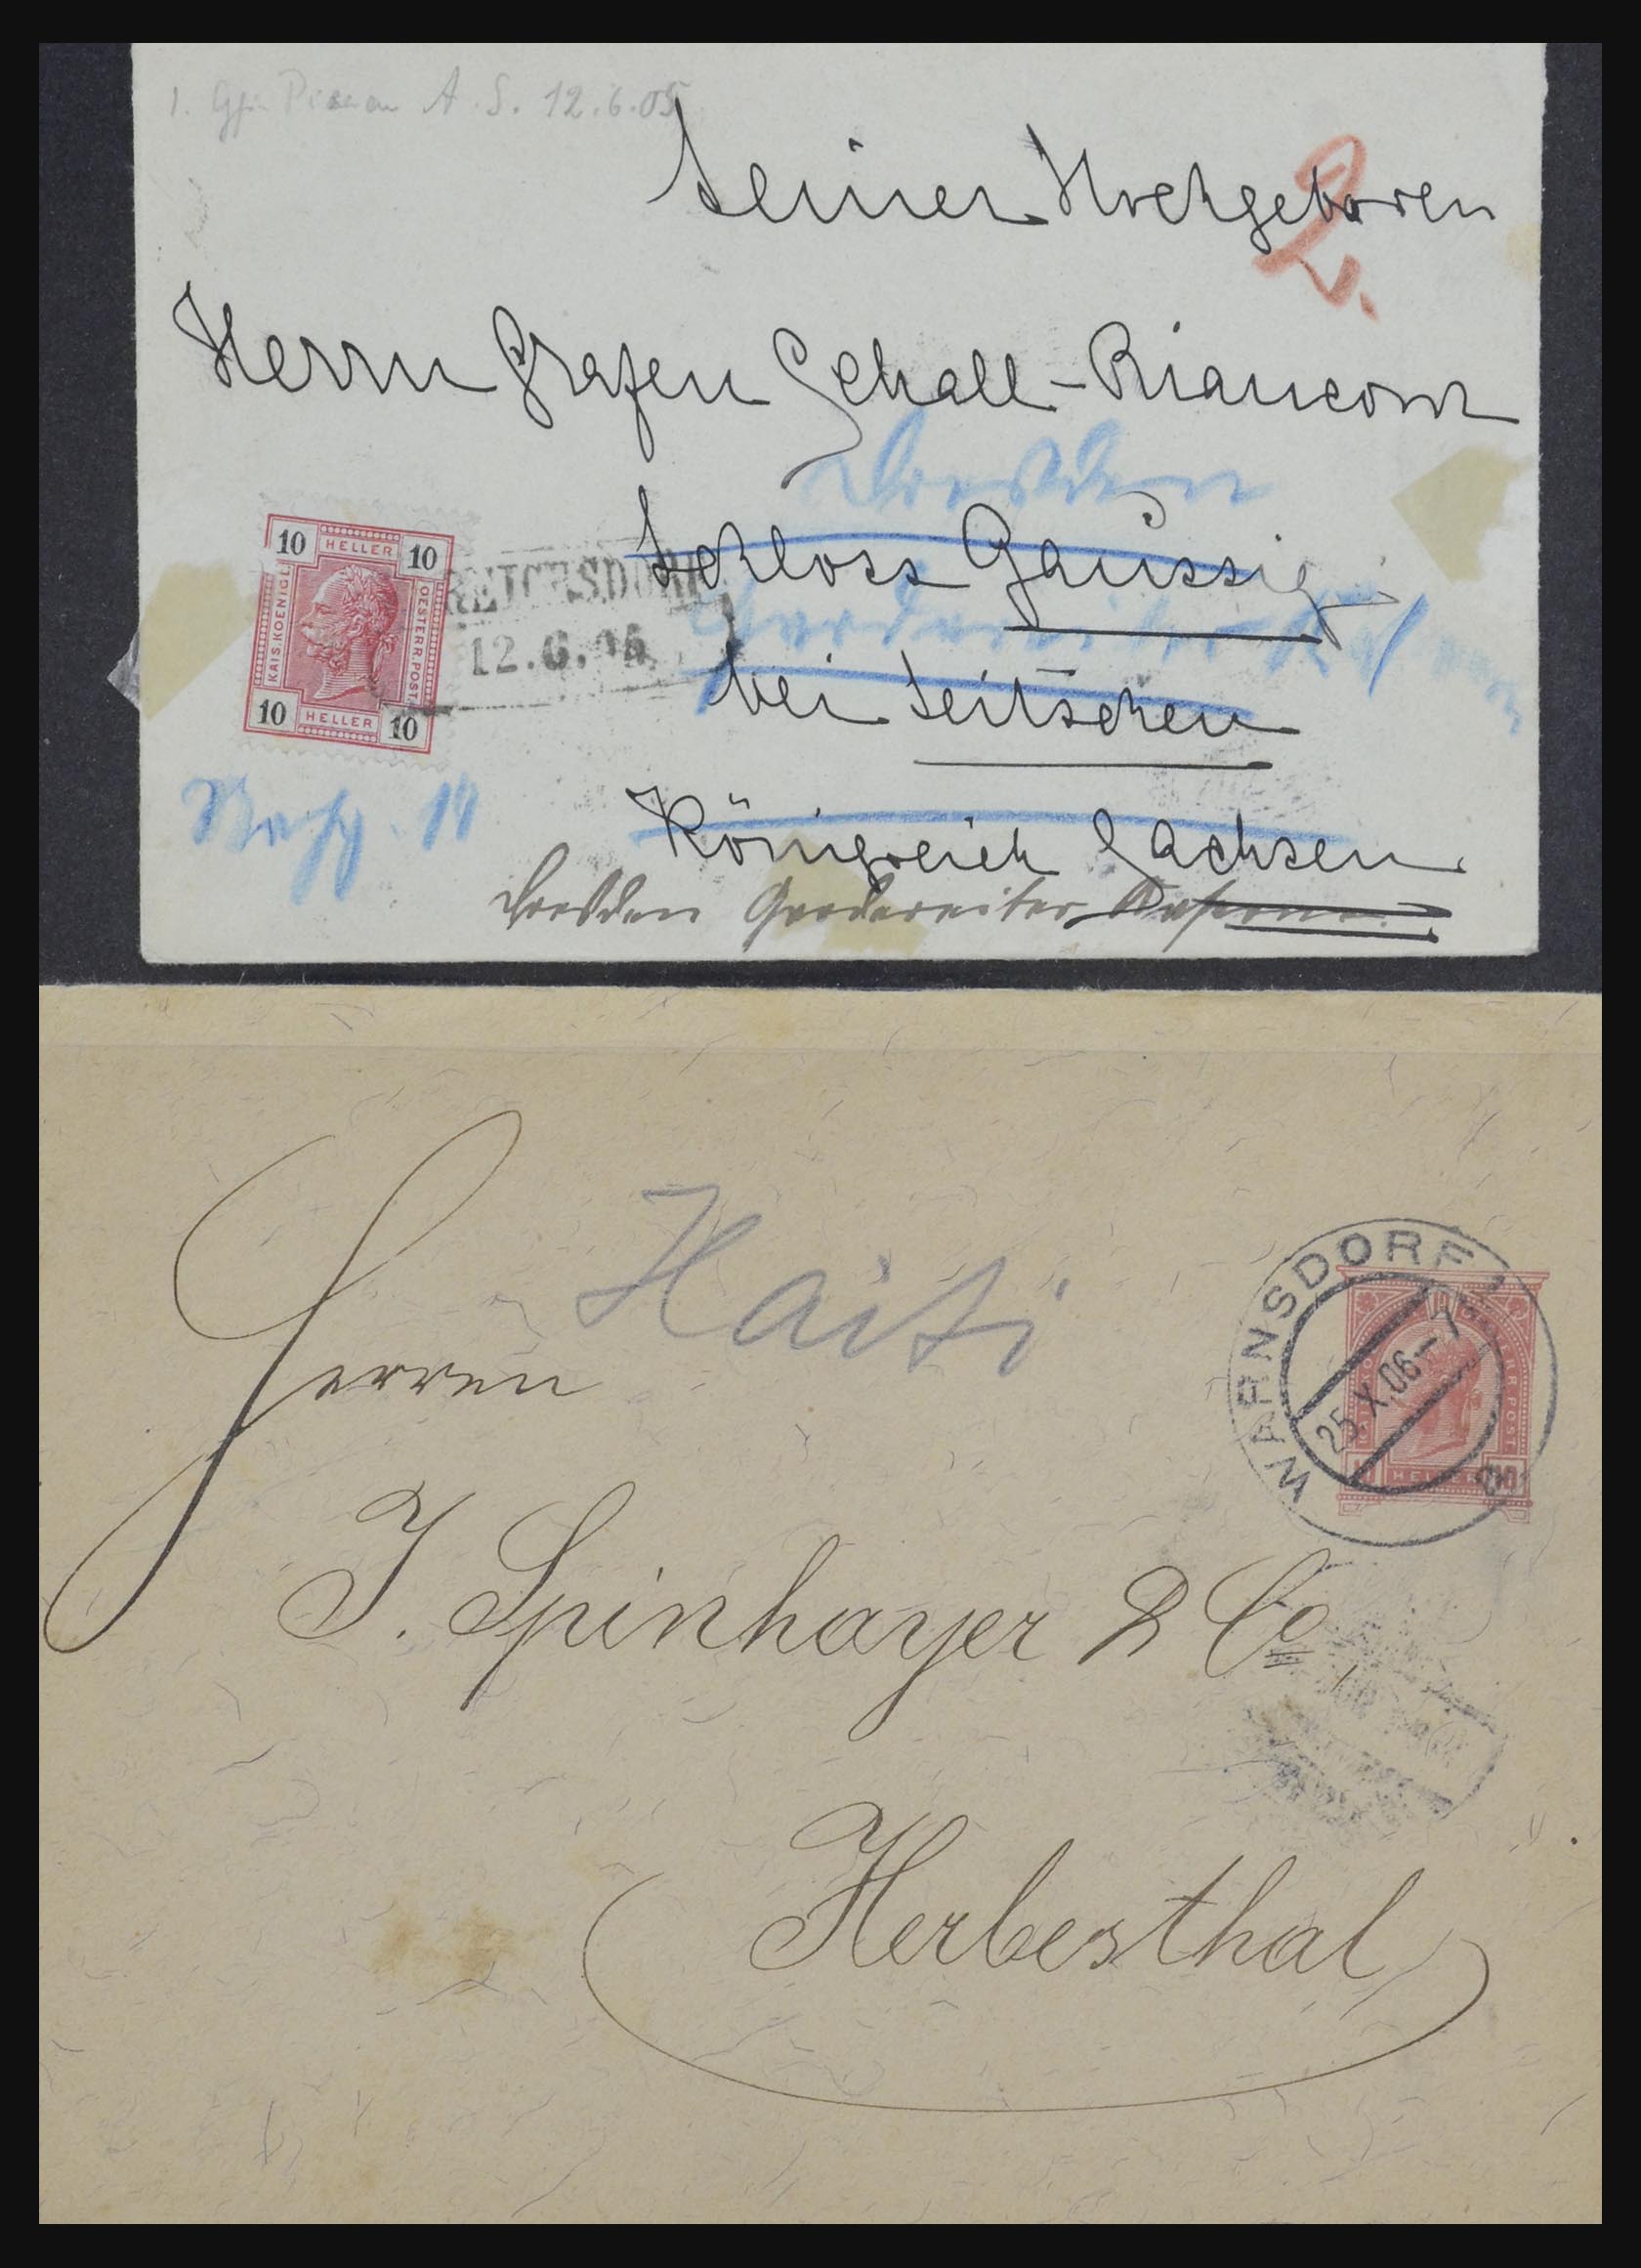 1. A. S. 12.6.05
2.
Seiner Hochgeboren
Herrn Grafen Schall-Riaucour
Dresden
Schloss Gaussig
bei Seitschen
Königreich Sachsen
Dresden Gardereiter Kaserne
10 HELLER 10
KAIS.KOENIGL.
OESTERR.POST
10 HELLER 10
REICHSDORF
12.6.05
Haiti
Herren
J. Spinhayer & Co
Herbesthal
WARNSDORF 1
25.X.06
HELLER 10